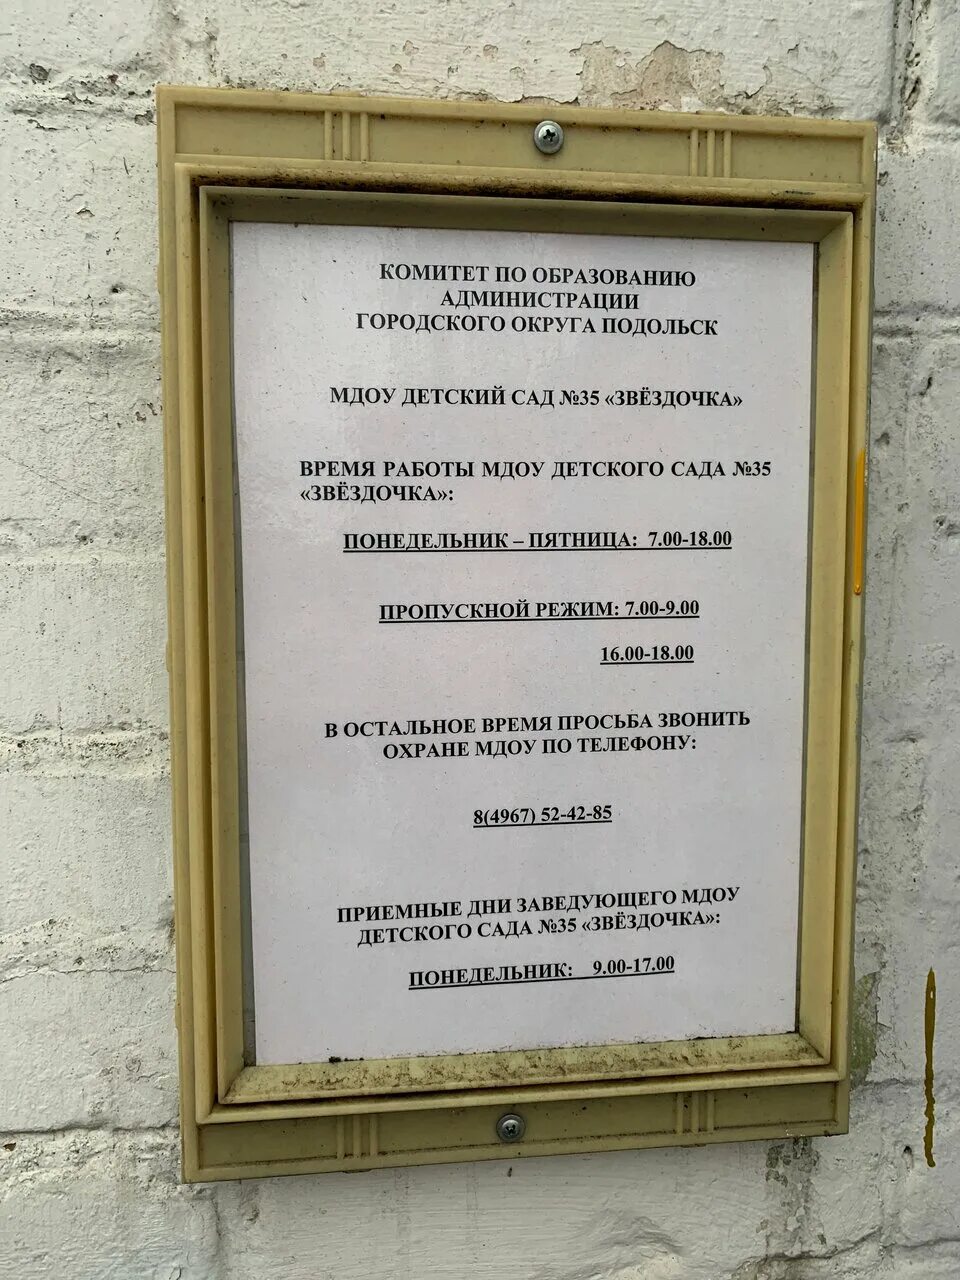 КОМИТЕТ ПО ОБРАЗОВАНИЮ
АДМИНИСТРАЦИИ
ГОРОДСКОГО ОКРУГА ПОДОЛЬСК
МДОУ ДЕТСКИЙ САД №35 «ЗВЁЗДОЧКА»
ВРЕМЯ РАБОТЫ МДОУ ДЕТСКОГО САДА №35
«ЗВЁЗДОЧКА»:
ПОНЕДЕЛЬНИК – ПЯТНИЦА: 7.00-18.00
ПРОПУСКНОЙ РЕЖИМ: 7.00-9.00
16.00-18.00
В ОСТАЛЬНОЕ ВРЕМЯ ПРОСЬБА ЗВОНИТЬ
ОХРАНЕ МДОУ ПО ТЕЛЕФОНУ:
8(4967) 52-42-85
ПРИЕМНЫЕ ДНИ ЗАВЕДУЮЩЕГО МДОУ
ДЕТСКОГО САДА №35 «ЗВЁЗДОЧКА»:
ПОНЕДЕЛЬНИК: 9.00-17.00